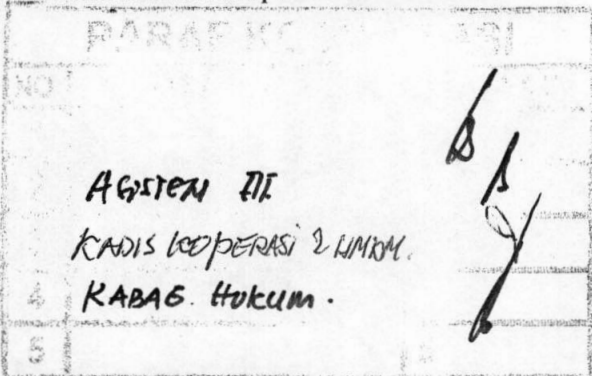 PARAF KO
ASISTEN III
KADIS KOPERASI & UMKM.
KABAG. HUKUM.
4
5